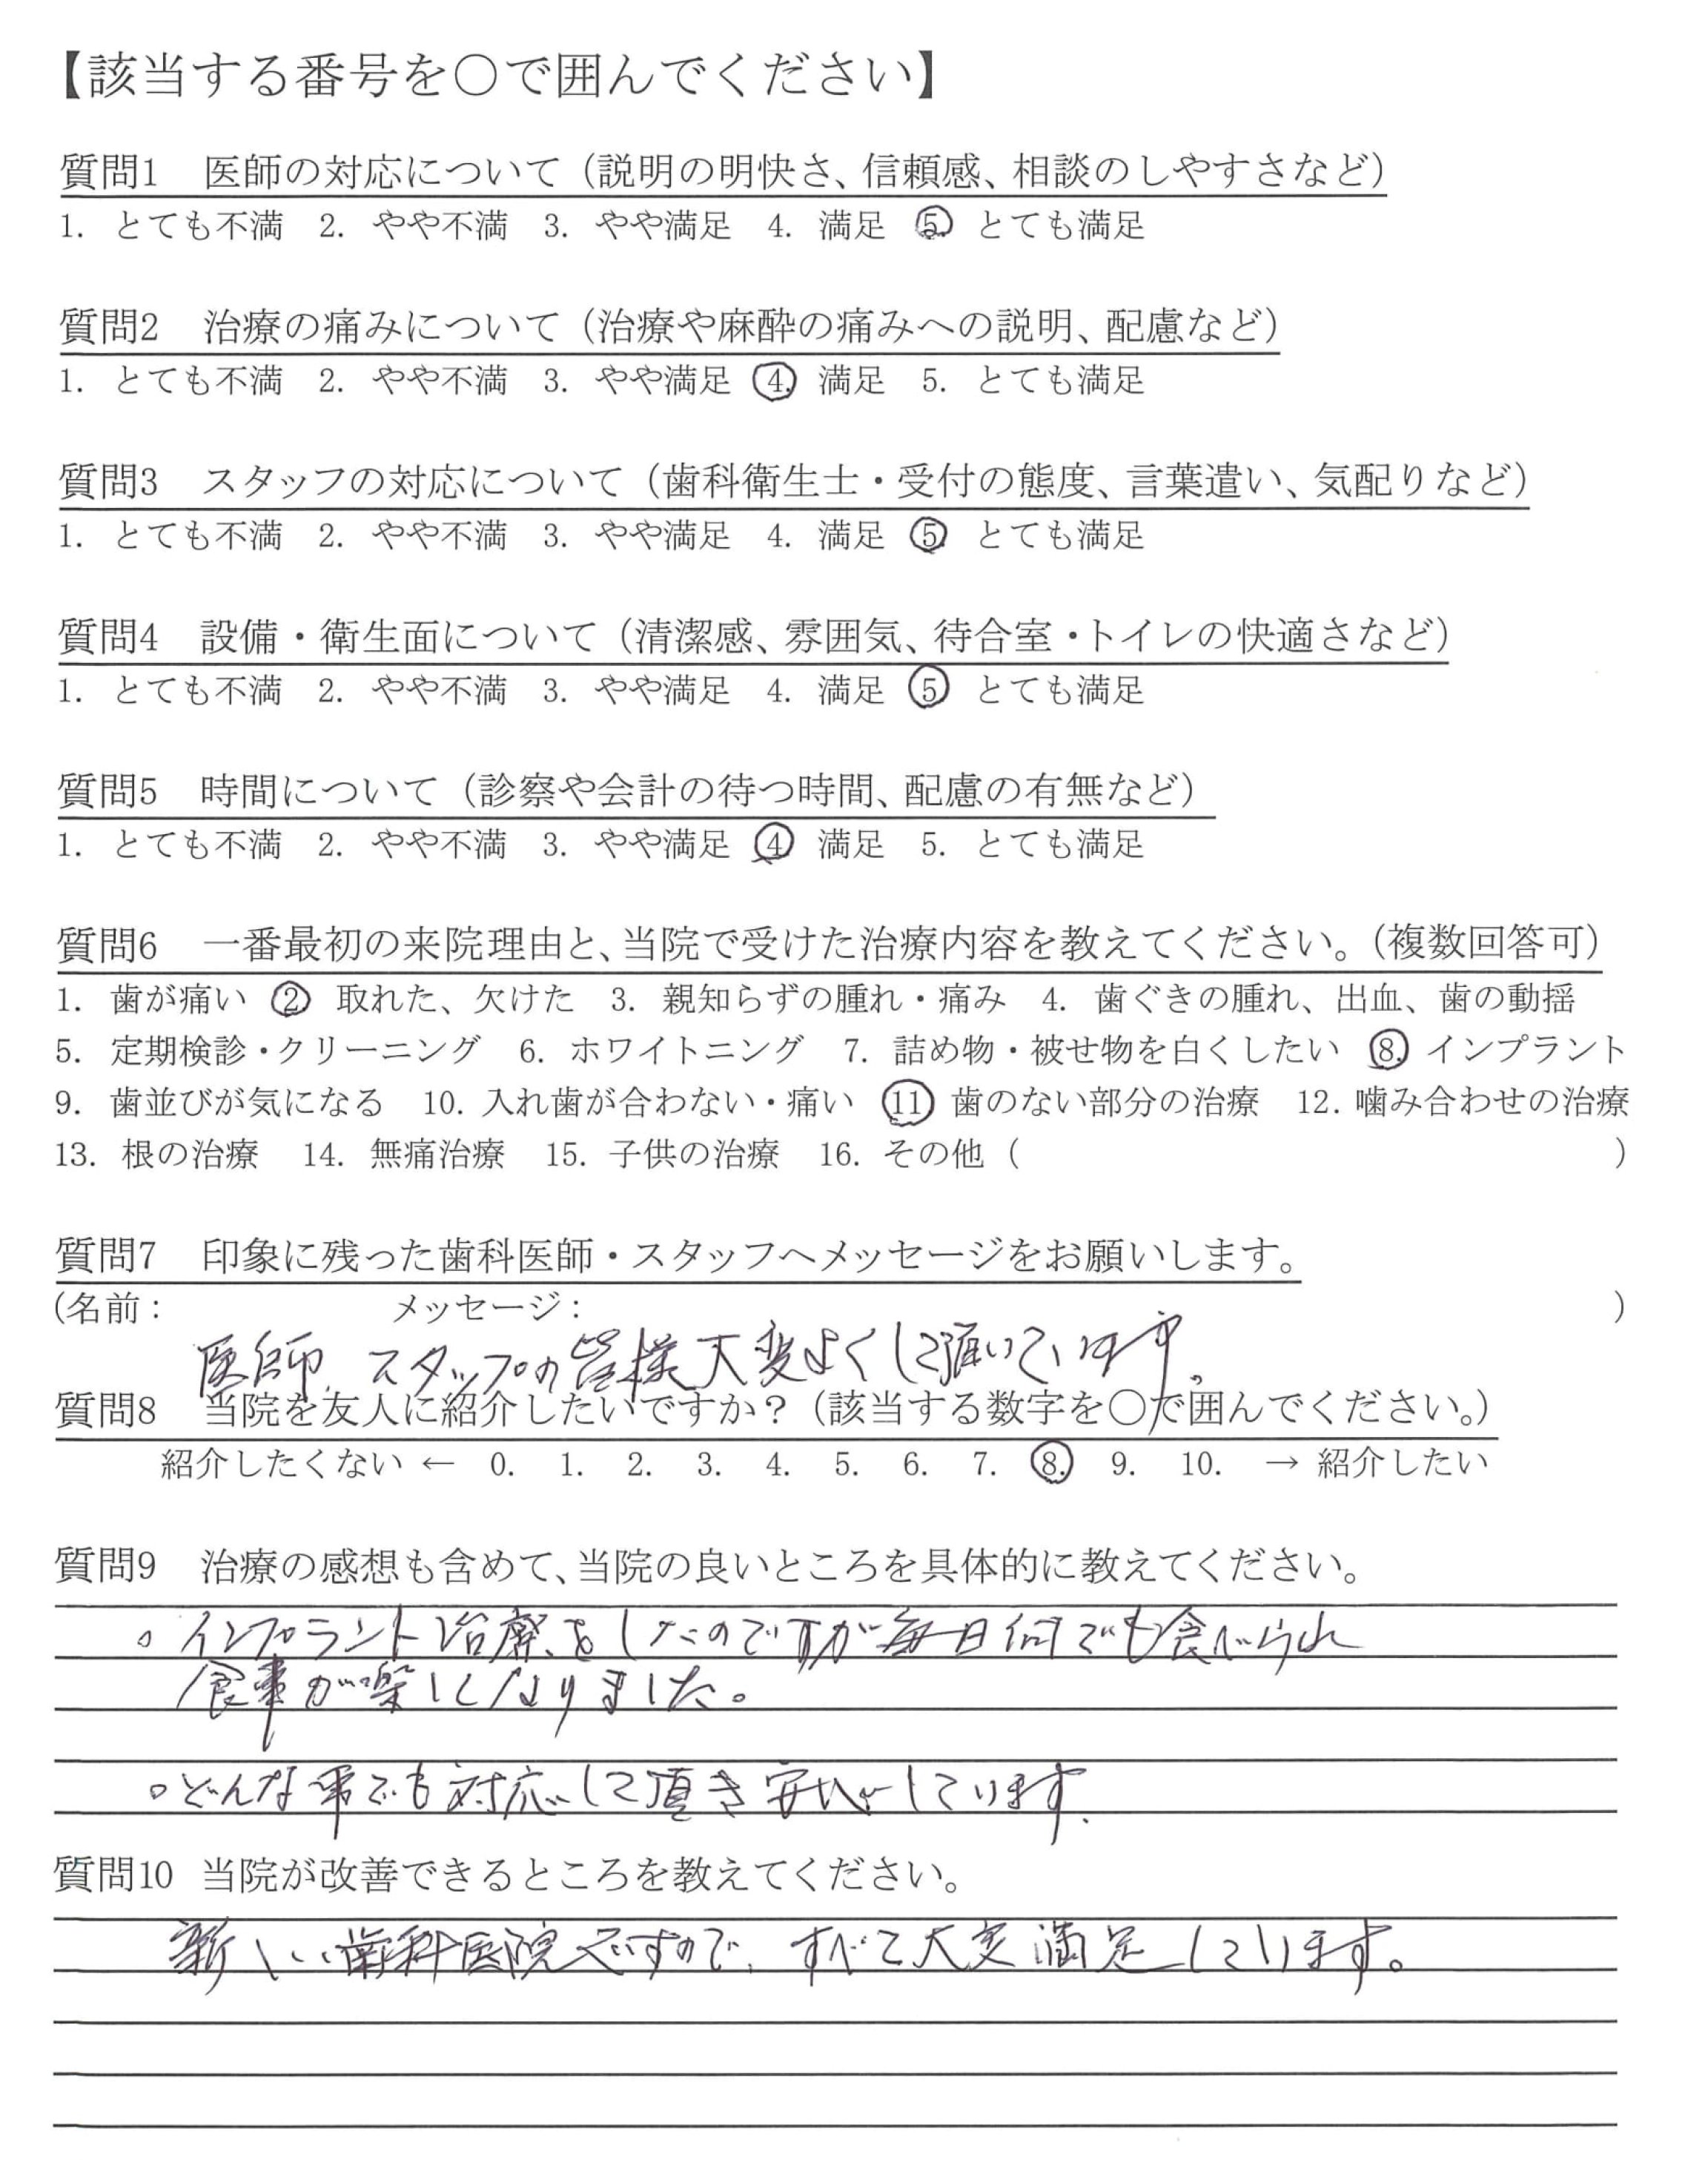 【該当する番号を〇で囲んでください】
質問1 医師の対応について（説明の明快さ、信頼感、相談のしやすさなど）
1. とても不満 2. やや不満 3. やや満足 4. 満足 5. とても満足
質問2 治療の痛みについて（治療や麻酔の痛みへの説明、配慮など）
1. とても不満 2. やや不満 3. やや満足 4. 満足 5. とても満足
質問3 スタッフの対応について（歯科衛生士・受付の態度、言葉遣い、気配りなど）
1. とても不満 2. やや不満 3. やや満足 4. 満足 5. とても満足
質問4 設備・衛生面について（清潔感、雰囲気、待合室・トイレの快適さなど）
1. とても不満 2. やや不満 3. やや満足 4. 満足 5. とても満足
質問5 時間について（診察や会計の待つ時間、配慮の有無など）
1. とても不満 2. やや不満 3. やや満足 4. 満足 5. とても満足
質問6 一番最初の来院理由と、当院で受けた治療内容を教えてください。（複数回答可）
1. 歯が痛い 2. 取れた、欠けた 3. 親知らずの腫れ・痛み 4. 歯ぐきの腫れ、出血、歯の動揺
5. 定期検診・クリーニング 6. ホワイトニング 7. 詰め物・被せ物を白くしたい 8. インプラント
9. 歯並びが気になる 10. 入れ歯が合わない・痛い 11 歯のない部分の治療 12. 噛み合わせの治療
13. 根の治療 14. 無痛治療 15. 子供の治療 16. その他（ ）
質問7 印象に残った歯科医師・スタッフへメッセージをお願いします。
(名前： メッセージ： )
医師、スタッフの皆様大変よくして頂いています。
質問8 当院を友人に紹介したいですか？（該当する数字を〇で囲んでください。）
紹介したくない ← 0. 1. 2. 3. 4. 5. 6. 7. 8. 9. 10. → 紹介したい
質問9 治療の感想も含めて、当院の良いところを具体的に教えてください。
。インプラント治療をしたのですが毎日何でも食べられ
食事が楽しくなりました。
。どんな事でも対応して頂き安心しています.
質問10 当院が改善できるところを教えてください。
新しい歯科医院ですので、すべて大変満足しています。